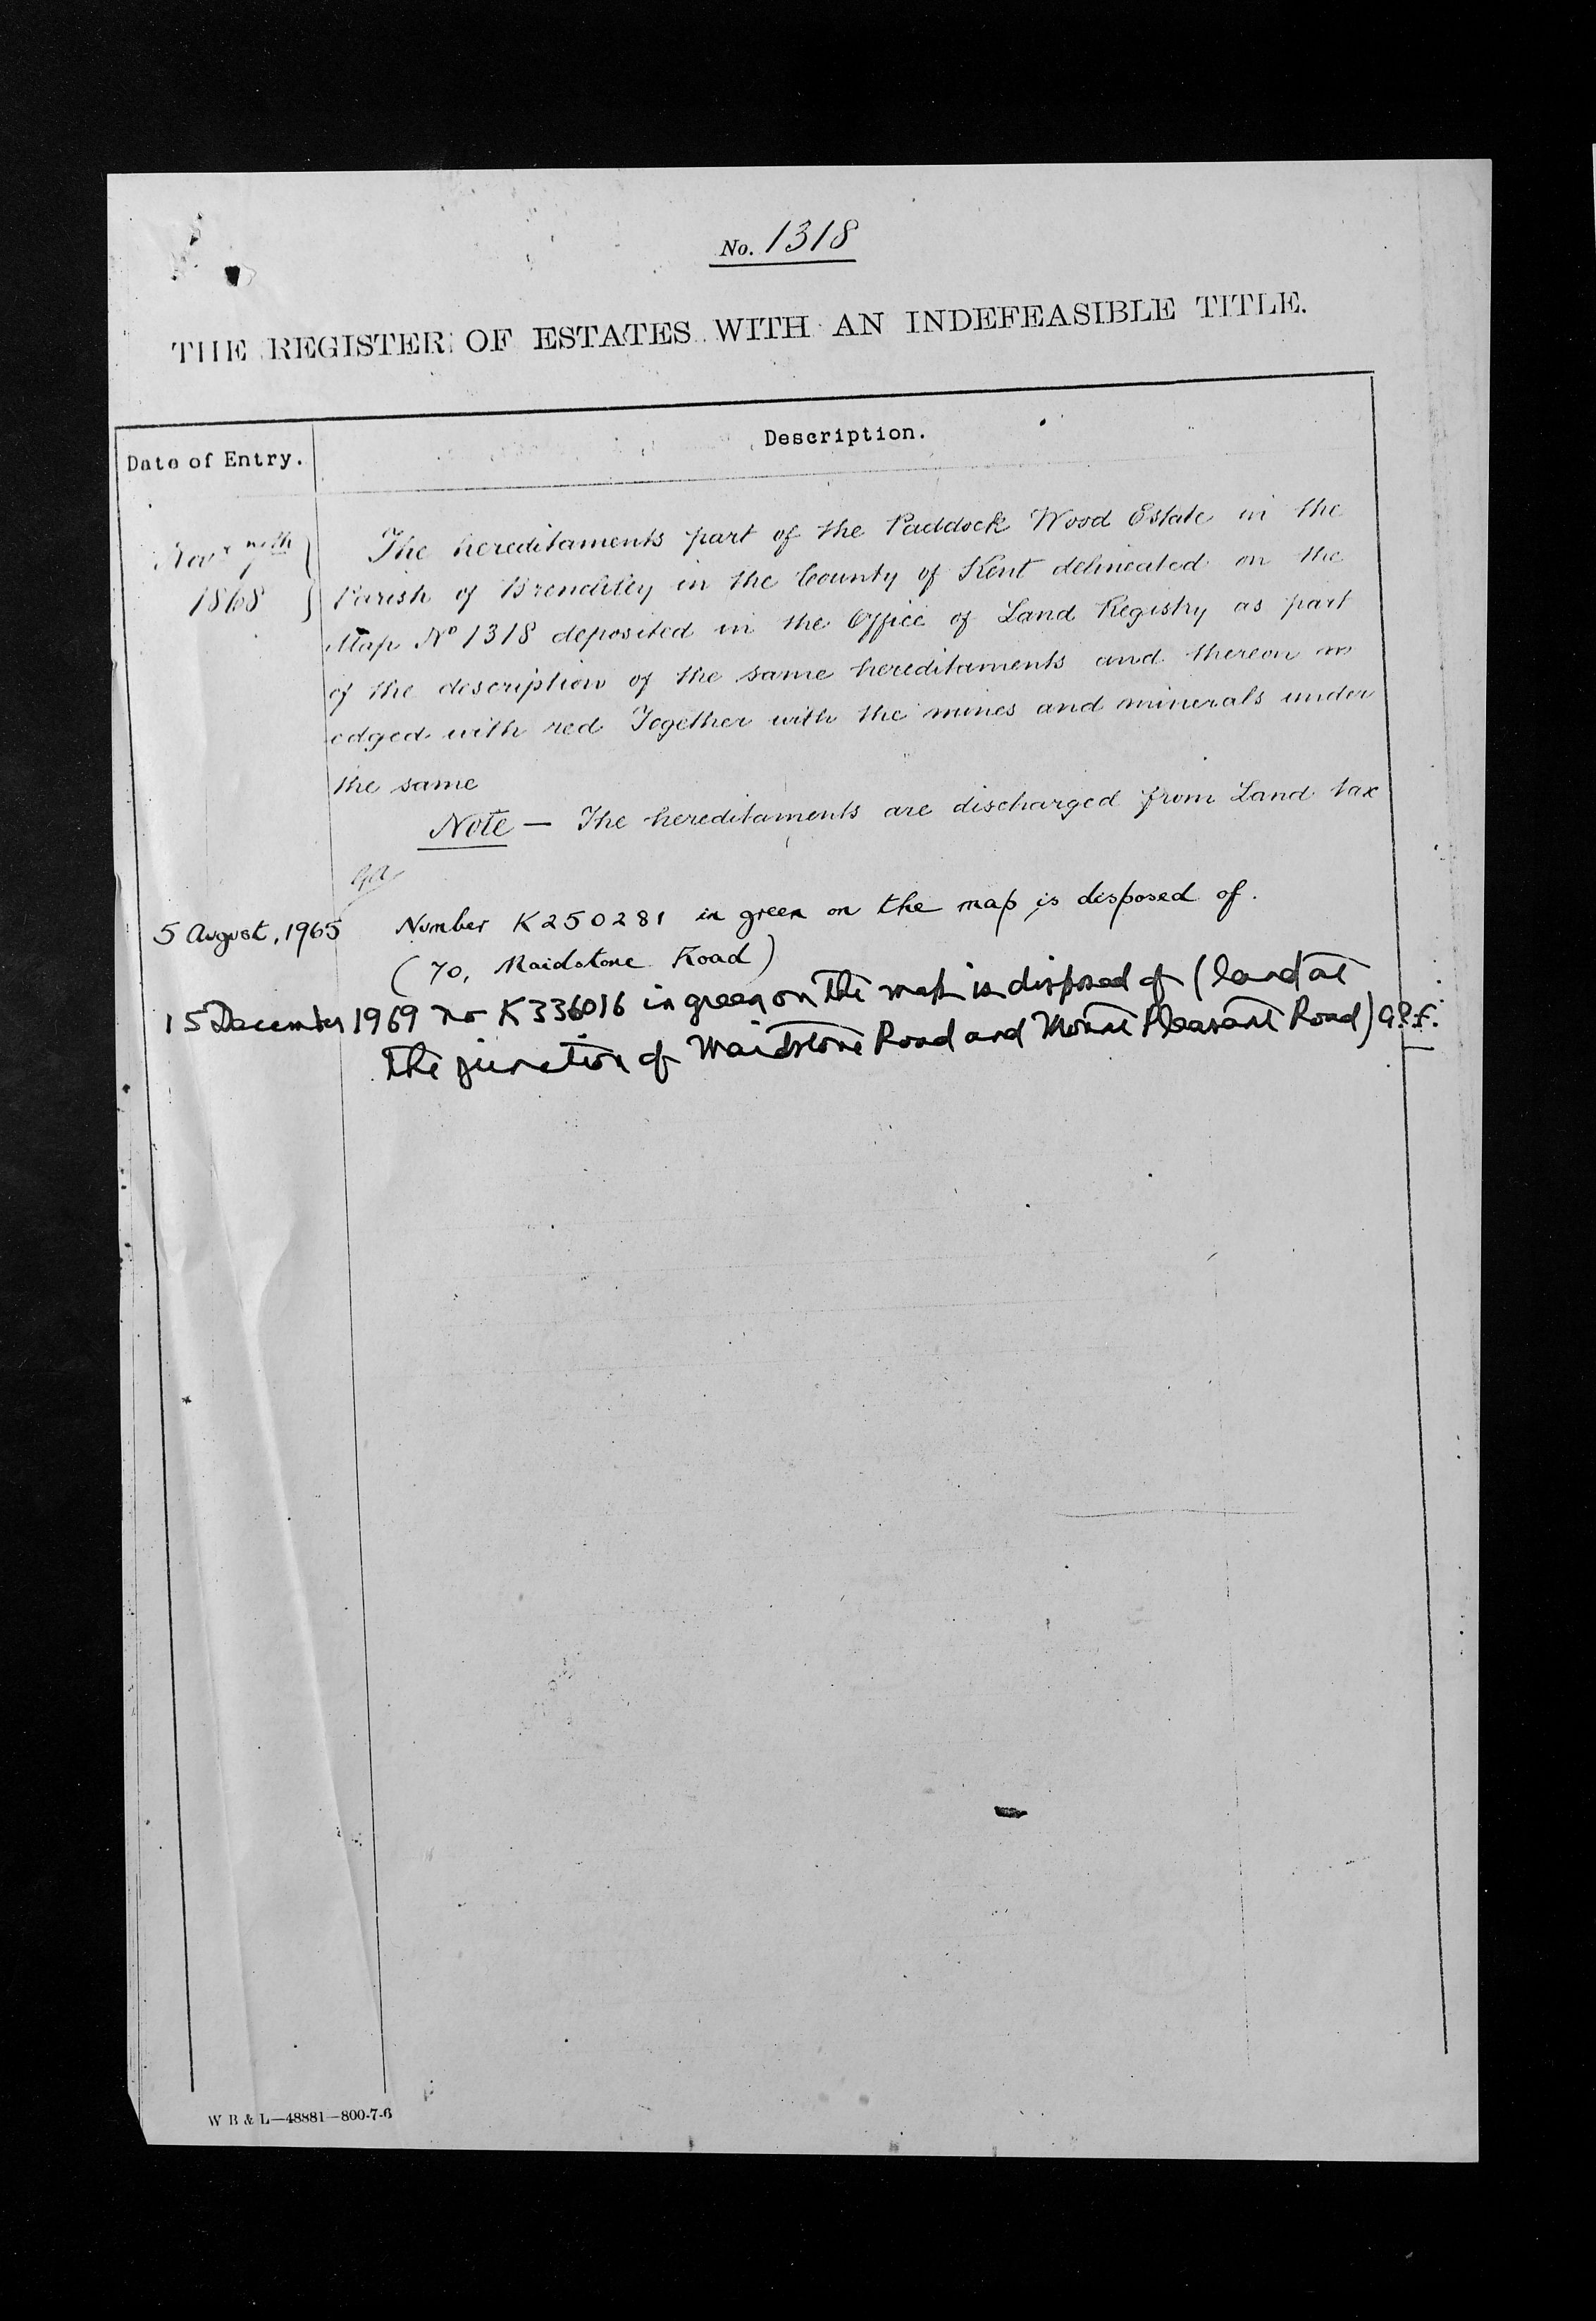 No. 1318
THE REGISTER OF ESTATES WITH AN INDEFEASIBLE TITLE.
Date of Entry.
Description.
Novr
1868
The hereditaments part of the Paddock Wood Estate in the
Parish of Brenchley in the County of Kent delineated on the
Map No 1318 deposited in the Office of Land Registry as part
of the description of the same hereditaments and thereon
edged with red Together with the mines and minerals under
the same
Note — The hereditaments are discharged from Land tax
5 August, 1965 Number K250281 in green on the map is disposed of.
(70, Maidstone Road)
15 December 1969 No K336016 in green on the map is disposed of (land at
the junction of Maidstone Road and Mount Pleasant Road) G.P.F.
W B & L—48881—800-7-6